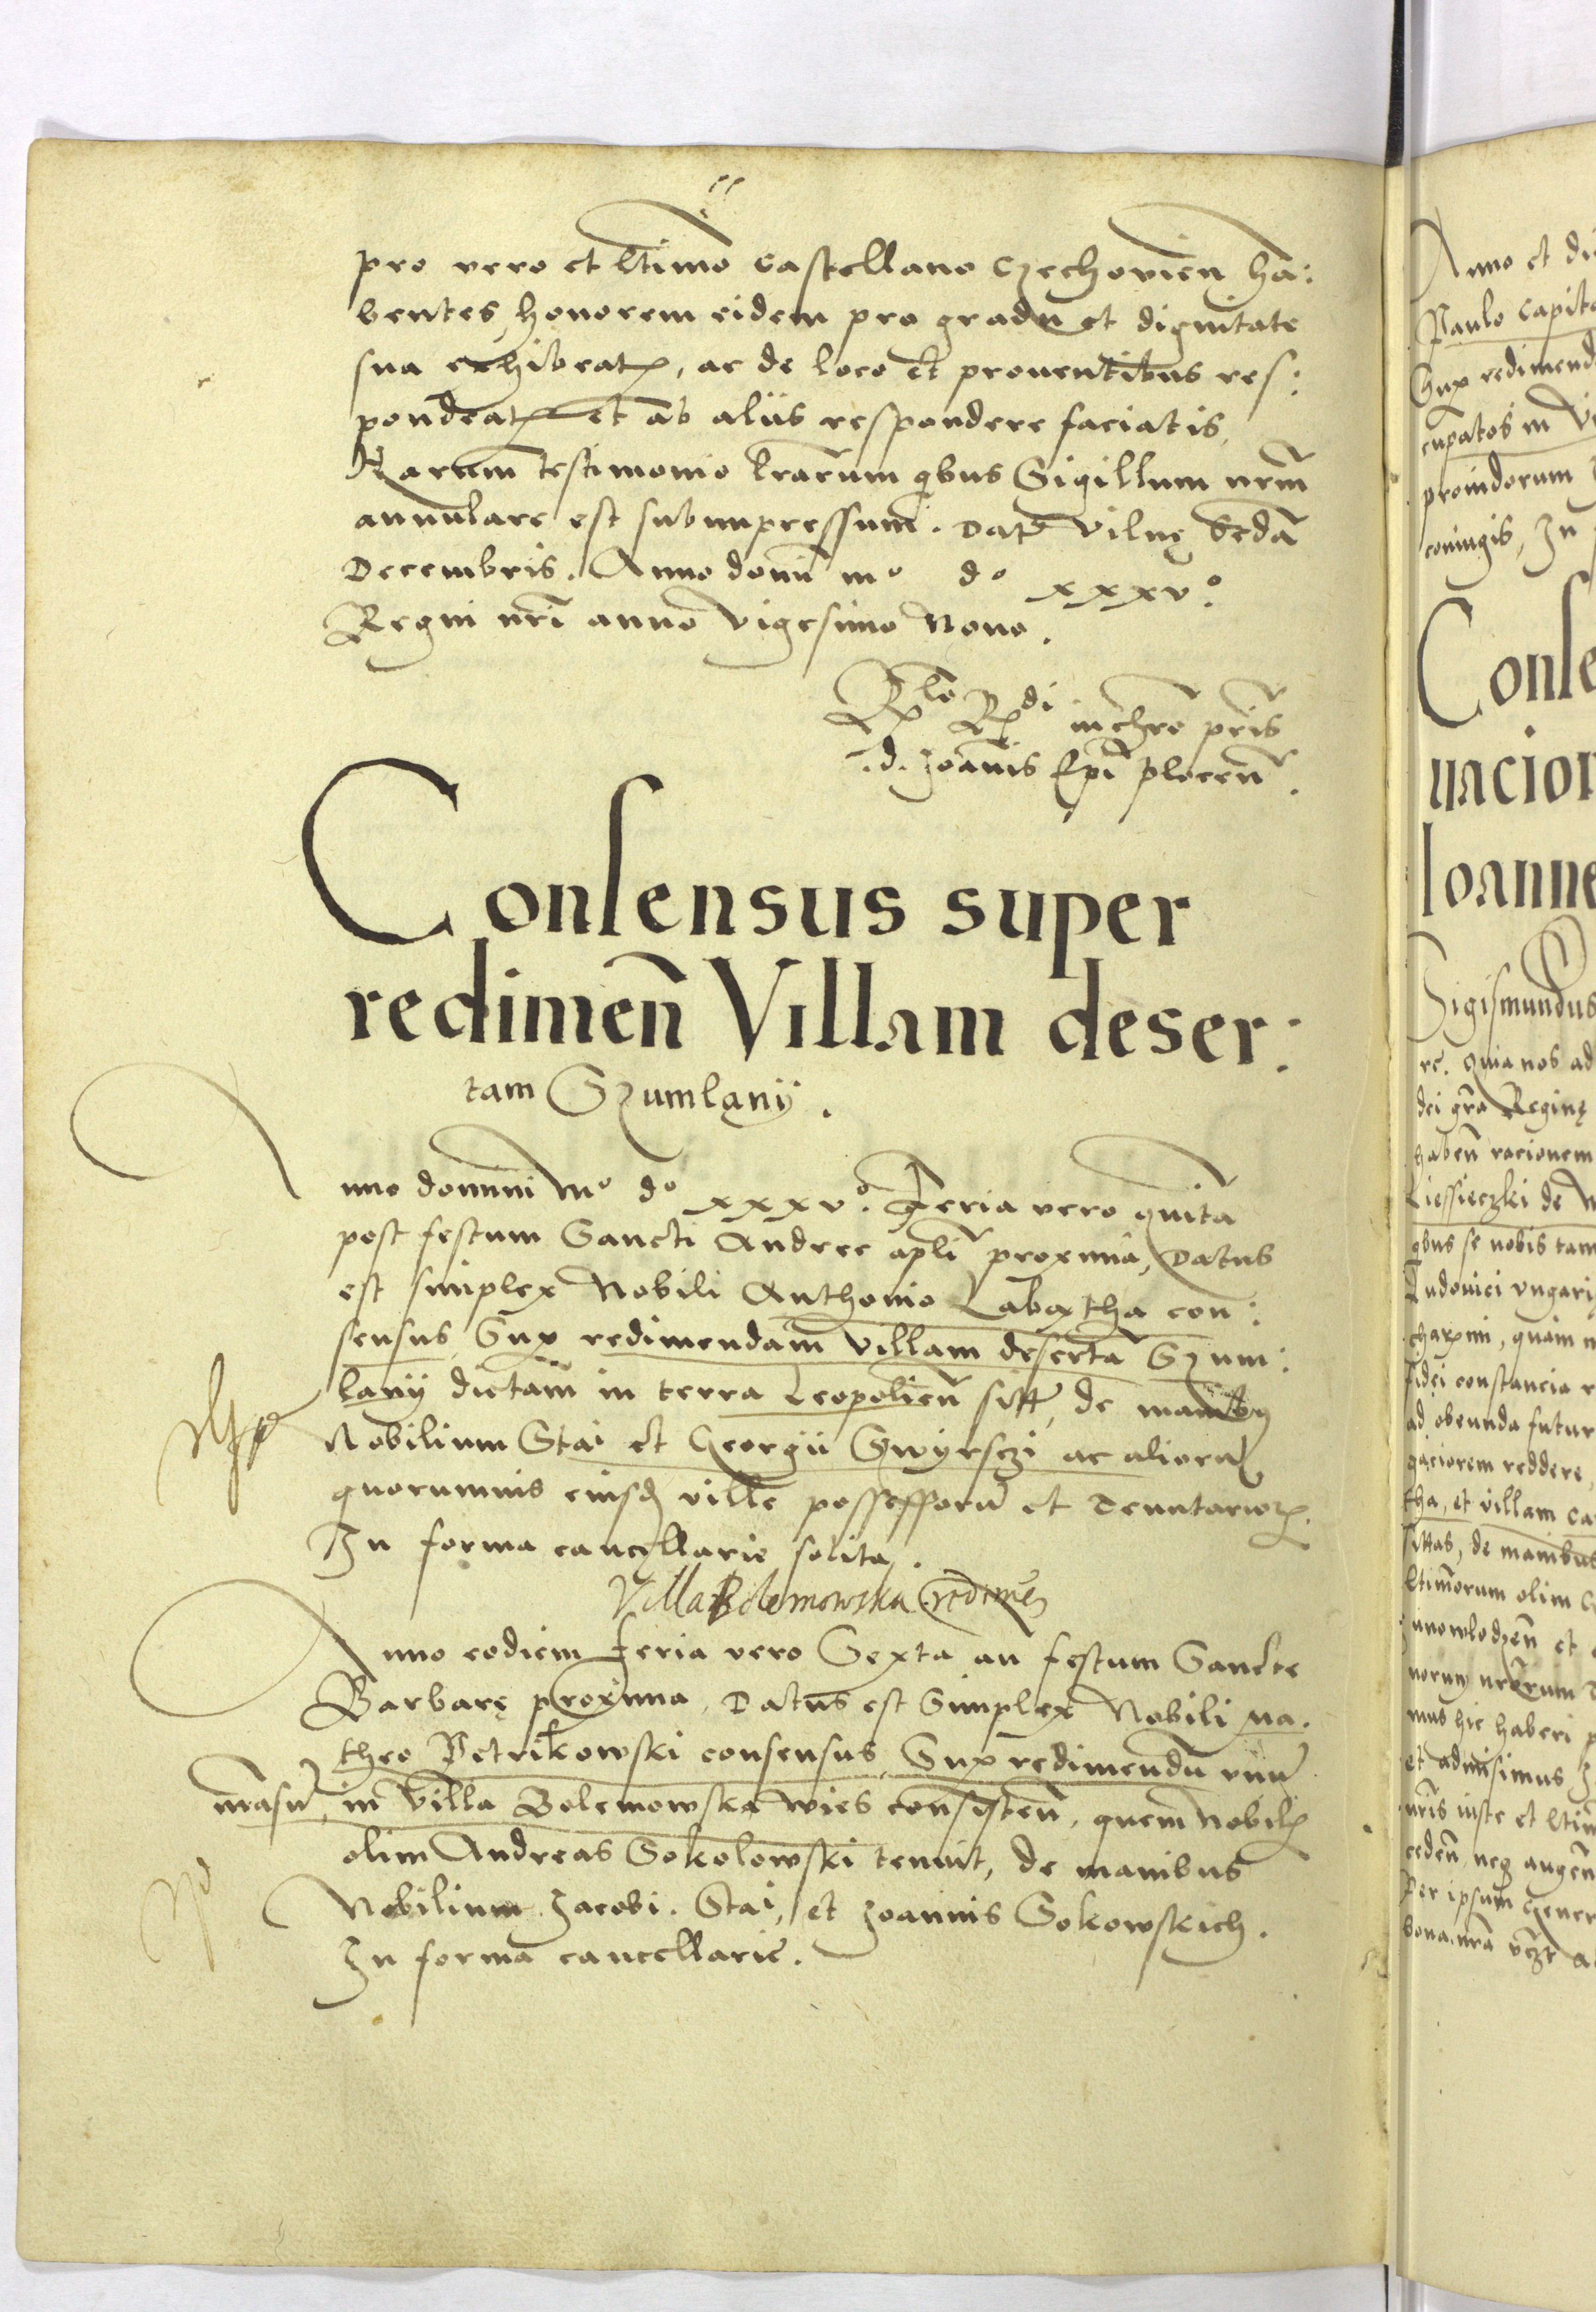 pro vero et ltimo Castellano Czechovien̄ ha:
bentes, honorem eidem pro gradu et dignitate
sua exhibeatꝭ, ac de loco et proventibus res:
pondeatꝭ et ab aliis respondere faciatis,
Harum testimonio l̄rarum q̄bus Sigillum nr̄m
annulare est subimpressum. Dat̄ Vilnę Secda
Decembris. Anno domī mº dº xxxvº.
Regni nr̄i anno Vigesimo Nono.
R̄lo R̄di in chr̄o pr̄is
.d. Joan̄is Ep̄i plocen̄.
Consensus super
redimen̄ Villam deser:
tam Szumlany.
Anno domini Mº dº xxxvº. Feria vero quinta
post festum Sancti Andree apl̄i proxima, Datus
est simplex Nobili Anthonio Labąxtha con:
sensus, Sup̱ redimendam villam deserta Szum:
lany dictam in terra Leopolien̄ sitt̄, de manibꝰ
Nobilium Stai et Georgii Swyrsczi ac aliorūꝭ
quorumvis eiusd̄ ville possessorū et Tenutariorꝭ.
In forma cancellarie solita.
Villa Bolemowska redimen̄
Anno eodiem feria vero Sexta an̄ festum Sancte
Barbarę proxima, Datus est Simplex Nobili Ma.
theo Petrikowski consensus, Sup̱ redimendū unū
mansū, in Villa Bolemowska wies consisten̄, quem Nobilꝭ
olim Andreas Sokolowski tenuit, de manibus
Nobilium Jacobi. Stai, et Joannis Sokowskich.
In forma cancellarie.
Anno et di
Paulo Capita
Sup̱ redimend
cupatos in Vi
proindorum
coniugis, In
Conse
nacion
Ioanne
Sigismundus
re. Quia nos ad
dei gr̄a Reginę
haben̄ racionem
Liessieczki de
q̄bus se nobis tam
Ludovici ungari
fidei constancia
ad obeunda futur
gaciorem reddere
tha, et villam ca
sittas, de manibus
ltimorum olim
inowlodzen̄ et
mus hic haberi
et admisimus
nr̄is iuste et ltim
ceden̄ neqꝫ augen̄
Per ipsum Gener
bona nr̄a